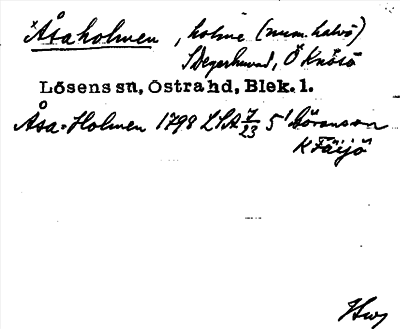 ×Åsaholmen, holme (num. halvö)
S Degerhuvud, Ö Knösö
Lösens sn, Östra hd, Blek. l.
Åsa-Holmen 1798 LSA 7/23 5' Göransson
K Färjö